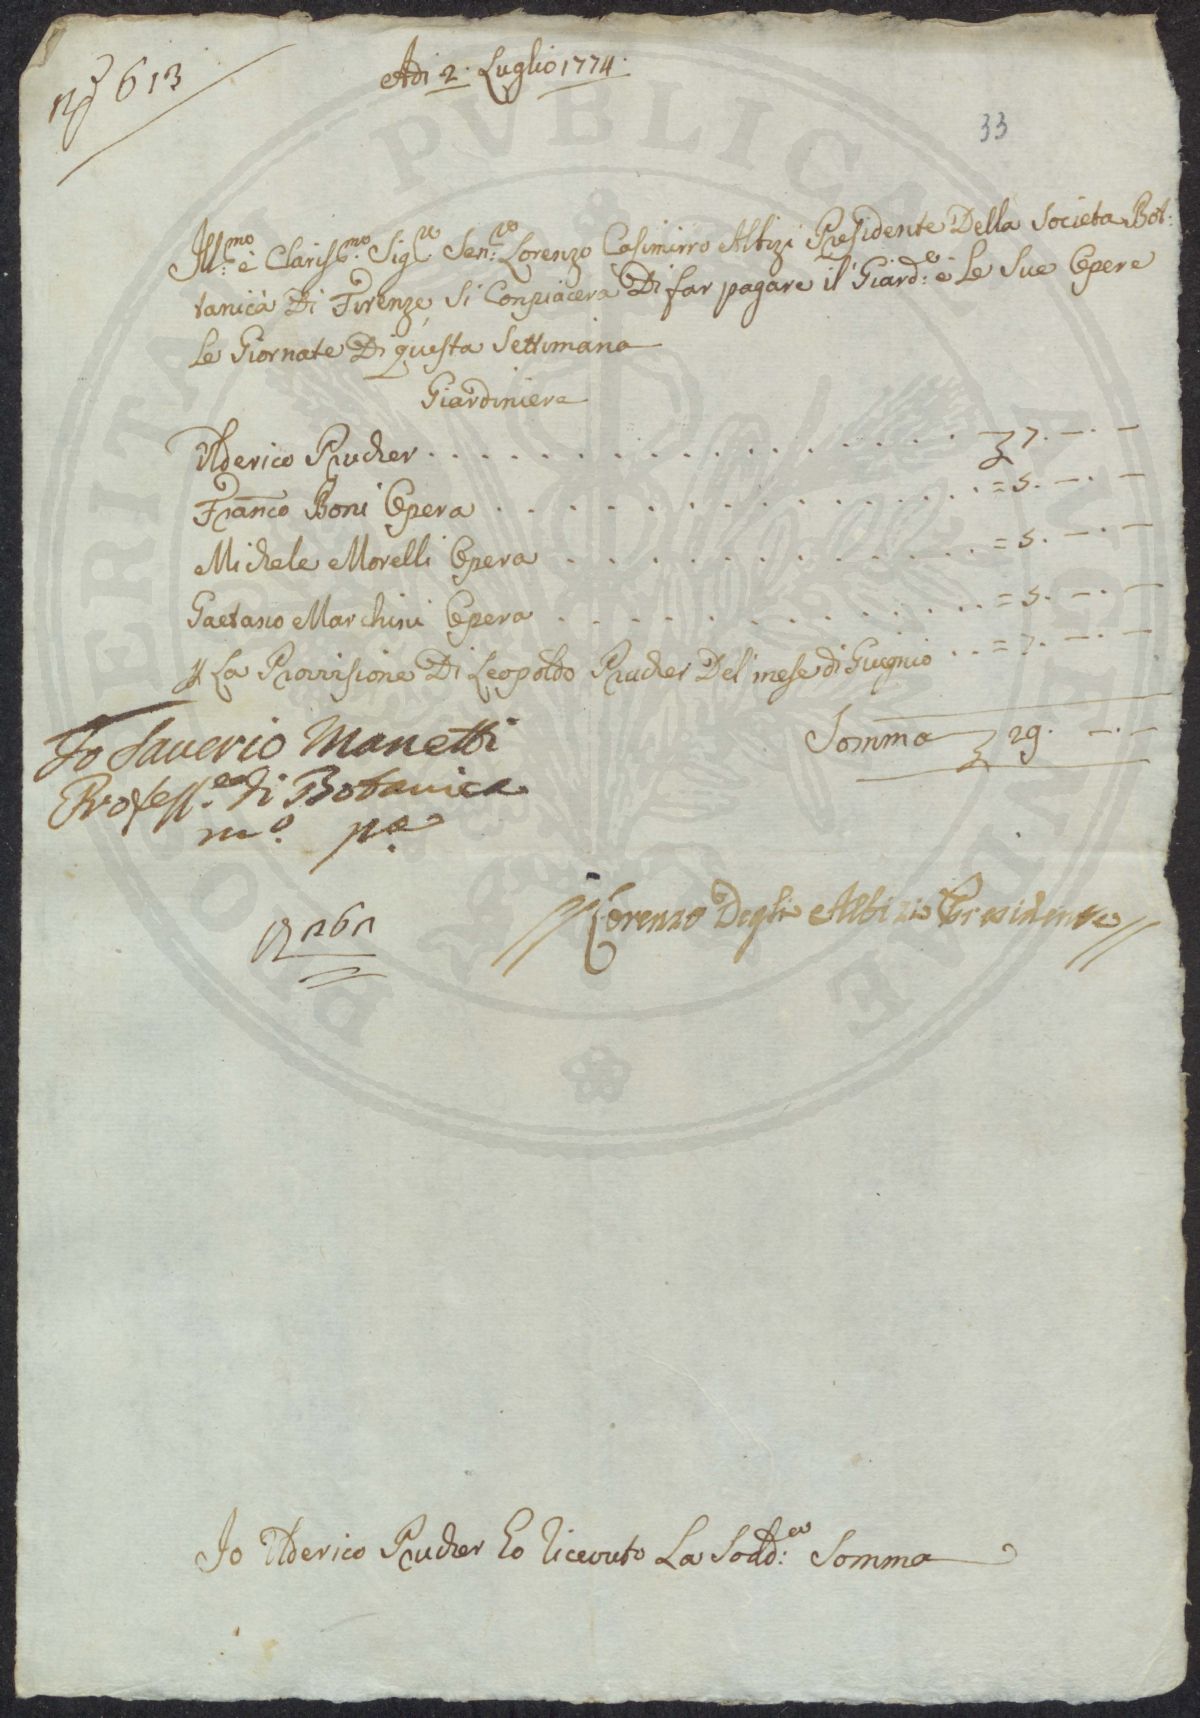 613
Adi 2. Luglio 1774.
33
Ill.mo è Claris.mo Sig.re Sen.re Lorenzo Casimirro Albizi Presidente Della Societa Bot:
tanica Di Firenze, Si Conpiacera Di far pagare il Giard.e è Le Sue Opere
Le Giornate Di questa Settimana
Giardiniere
Ulderico Prucher . . . . . . . . . . 7. — . —
Franco Boni Opera . . . . . . . . . . = 5. — . —
Michele Morelli Opera . . . . . . . . . . = 5. — . —
Gaetano Marchini Opera . . . . . . . . . . = 5. — . —
La Provisione Di Leopoldo Prucher Del mese di Giugnio . . = 7. — . —
Somma 29. — . —
Io Saverio Manetti
Profess.e di Botanica
mo. pa.
Lorenzo Degli Albizi Presidente
Io Ulderico Prucher Ho Ricevuto La Sodd.a Somma
PVBLICAE